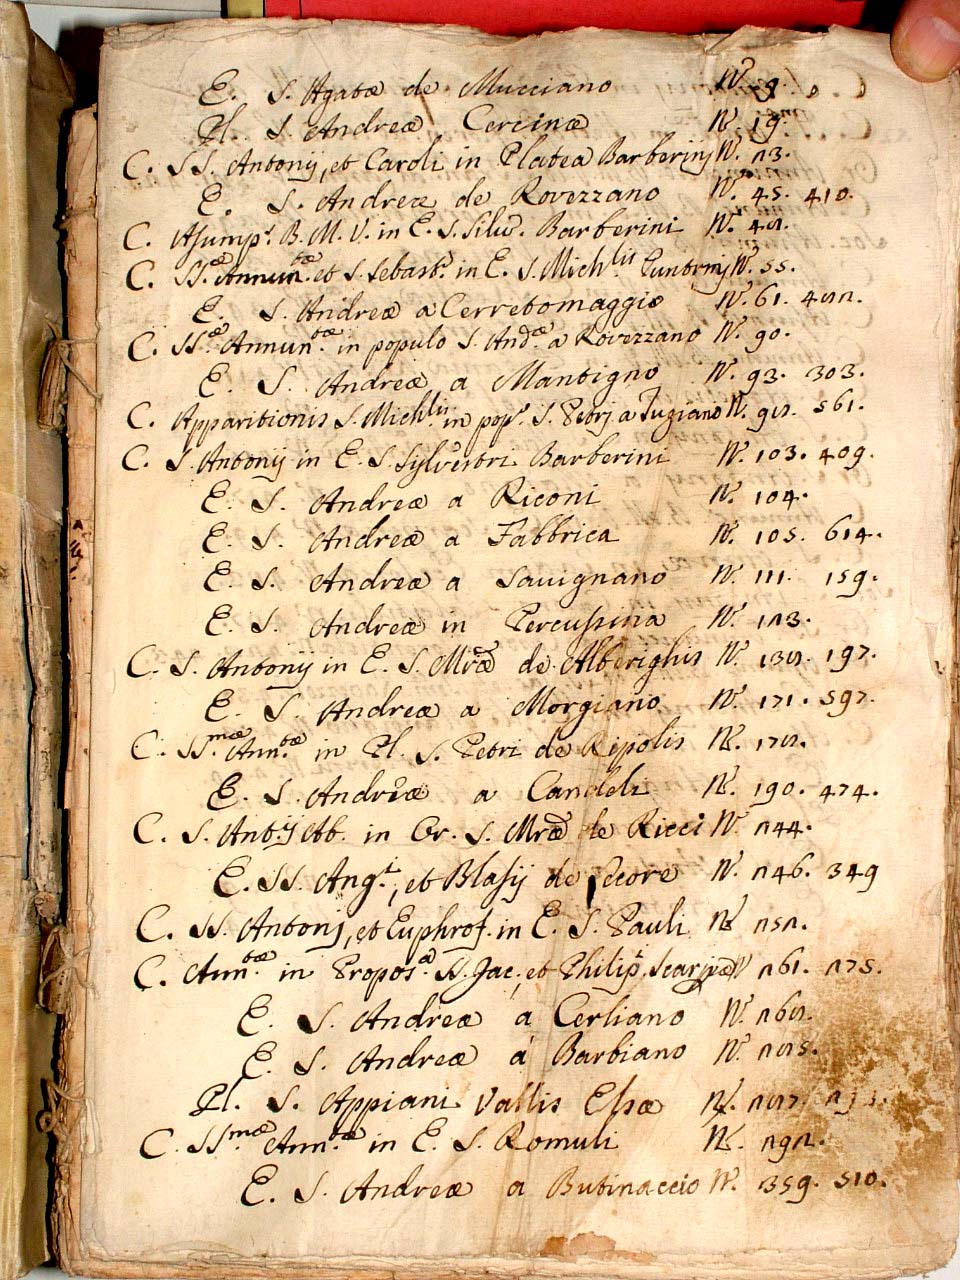 E. S. Agatæ de Mucciano Nº. 9.
Pl. S. Andreæ Cercinæ Nº. 19.
C. SS. Antonij, et Caroli in Platea Barberinj Nº. 23.
E. S. Andreæ de Rovezzano Nº. 45. 410.
C. Assumpt. B. M. V. in E. S. Silv. Barberini Nº.
C. SS.æ Annun.tæ et S. Sebast. in E. S. Mich.lis Nº. 55.
E. S. Andreæ a Cerretomaggio Nº. 61.
C. SS.æ Annun.tæ in populo S. And.æ a Rovezzano Nº. 90.
E. S. Andreæ a Mantigno Nº. 93. 303.
C. Apparitionis S. Mich.lis in pop. S. Petrj a Jugiano Nº. 561.
C. S. Antonij in E. S. Sylvestri Barberini Nº. 103. 409.
E. S. Andreæ a Riconi Nº. 104.
E. S. Andreæ a Fabbrica Nº. 105. 614.
E. S. Andreæ a Savignano Nº. 111. 159.
E. S. Andreæ in Percussina Nº. 123.
C. S. Antonij in E. S. Mræ de Alberighis Nº. 197.
E. S. Andreæ a Morgiano Nº. 171. 597.
C. SS.mæ Ann.tæ in Pl. S. Petri de Ripolis Nº.
E. S. Andreæ a Candeli Nº. 190. 474.
C. S. Ant.ij Ab. in Or. S. Mræ de Ricci Nº 244.
E. SS. Ang.i, et Blasij de Secore Nº. 246. 349
C. SS. Antonj, et Euphros. in E. S. Pauli Nº 252.
C. Ann.tæ in Propos.a SS. Jac., et Philip. Scarpæ Nº 261. 275.
E. S. Andreæ a Cerliano Nº.
E. S. Andreæ a Barbiano Nº.
Pl. S. Appiani Vallis Elsæ Nº.
C. SS.mæ Ann.tæ in E. S. Romuli Nº. 292.
E. S. Andreæ a Butinaccio Nº. 359. 510.